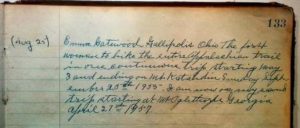 133
(Aug 25)
Emma Gatewood Gallipolis Ohio The first
woman to hike the entire Appalachian trail
in one continuous trip starting May
3 and ending on Mt Katahdin Sunday Sept
ember 25th 1955 I am now on my second
trip starting at Mt Oglethorpe Georgia
April 27th 1957